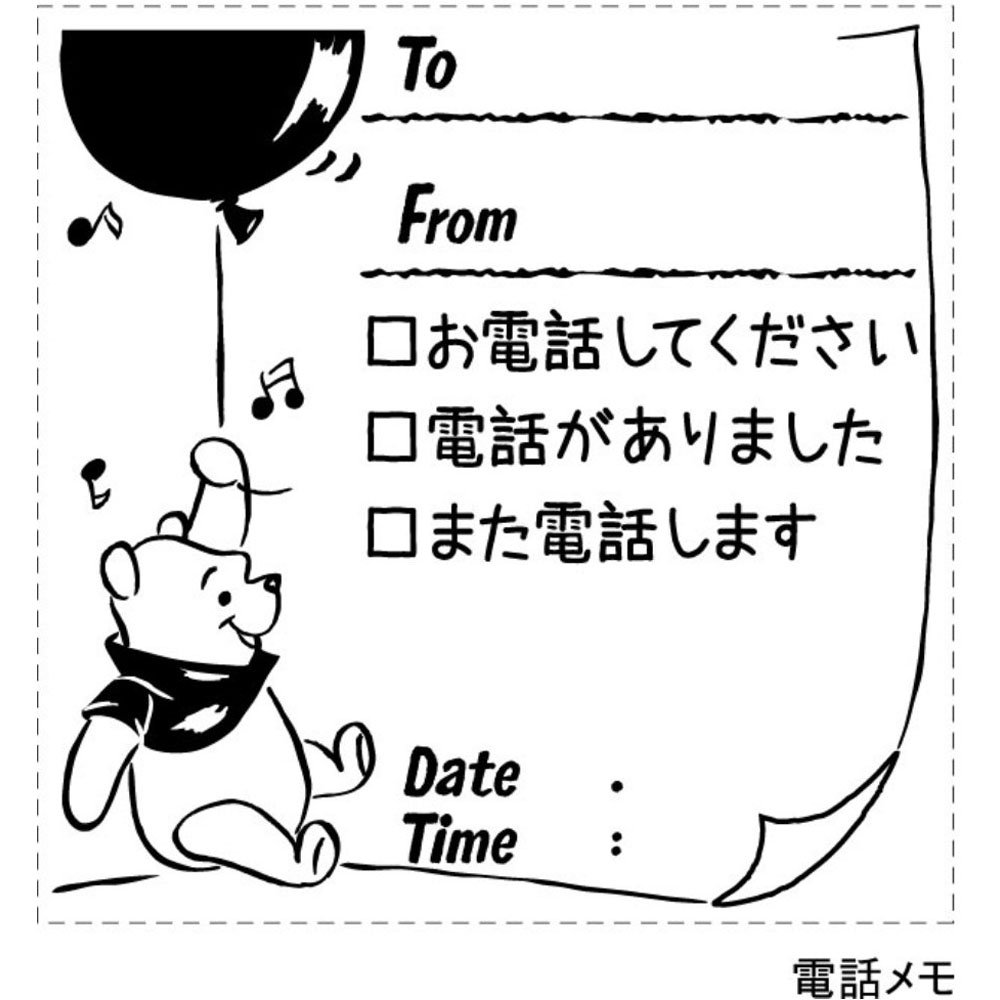 To
From
□お電話してください
□電話がありました
□また電話します
Date .
Time :
電話メモ